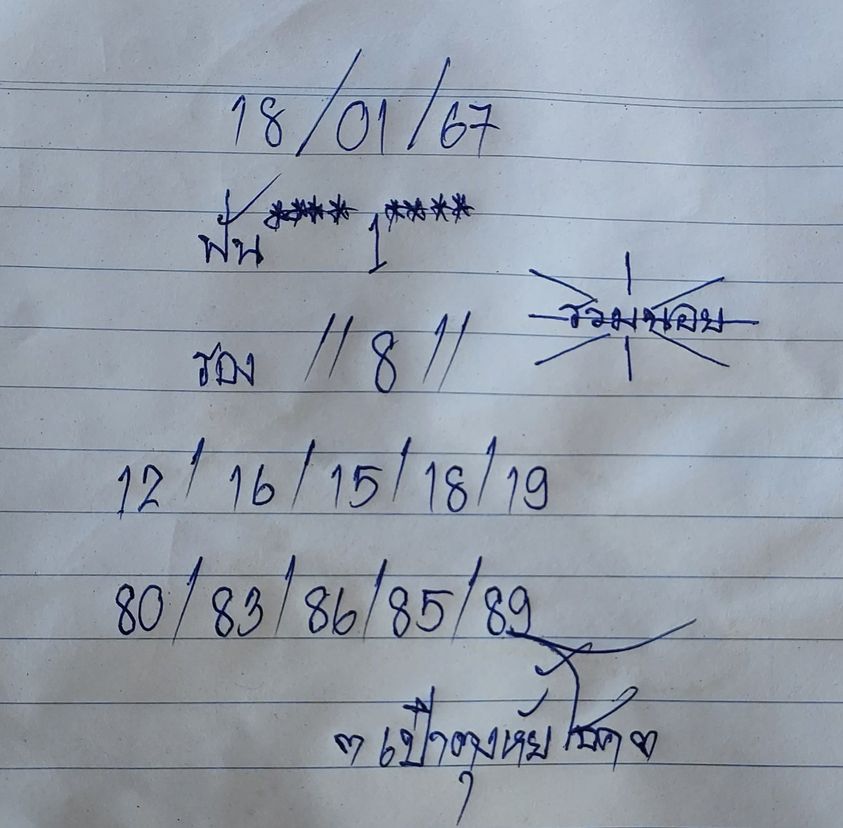 18/01/67
ฟัน **** 1 ****
รวมหอย
รอง //8//
12/16/15/18/19
80/83/86/85/89
เป๋าตุงให้โชค